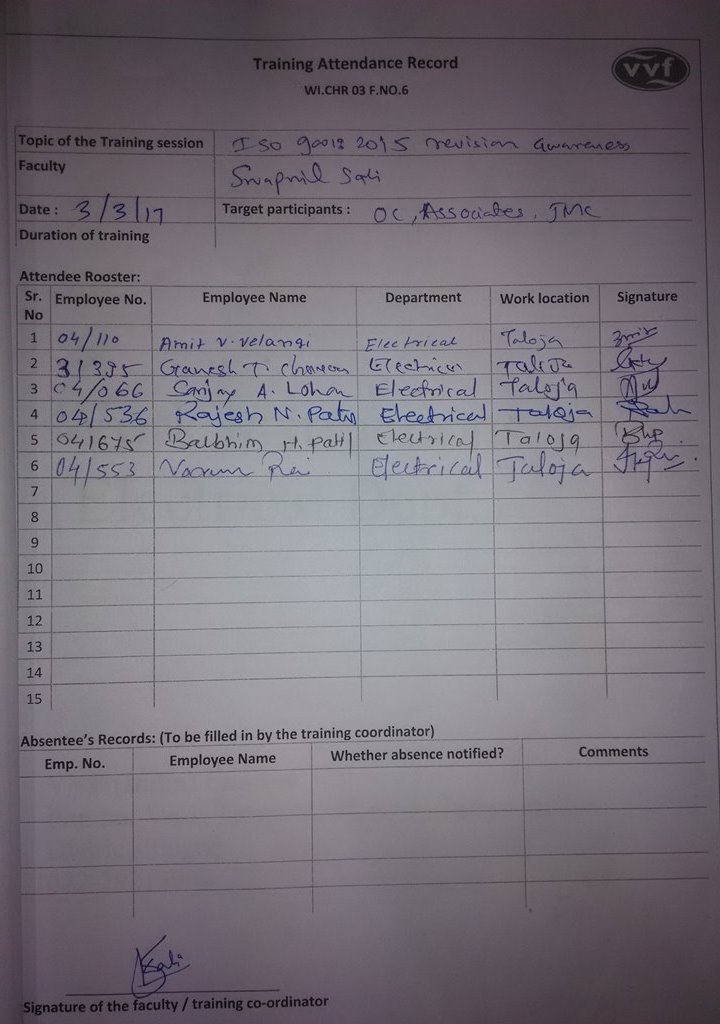 Training Attendance Record
vvf
WI.CHR 03 F.NO.6
Topic of the Training session ISO 9001: 2015 revision awareness
Faculty Swapnil Sali
Date : 3/3/17 Target participants : OC, Associates, JMC
Duration of training
Attendee Rooster:
Sr. No Employee No. Employee Name Department Work location Signature
1 04/110 Amit V. Velangi Electrical Taloja
2 31395 Ganesh T. Chavan Electrical Taloja
3 04/066 Sanjay A. Lohar Electrical Taloja
4 04/536 Rajesh N. Patil Electrical Taloja
5 04/675 Balbhim H. Patil Electrical Taloja
6 04/553 Varun Rai Electrical Taloja
7
8
9
10
11
12
13
14
15
Absentee's Records: (To be filled in by the training coordinator)
Emp. No. Employee Name Whether absence notified? Comments
Sali
Signature of the faculty / training co-ordinator